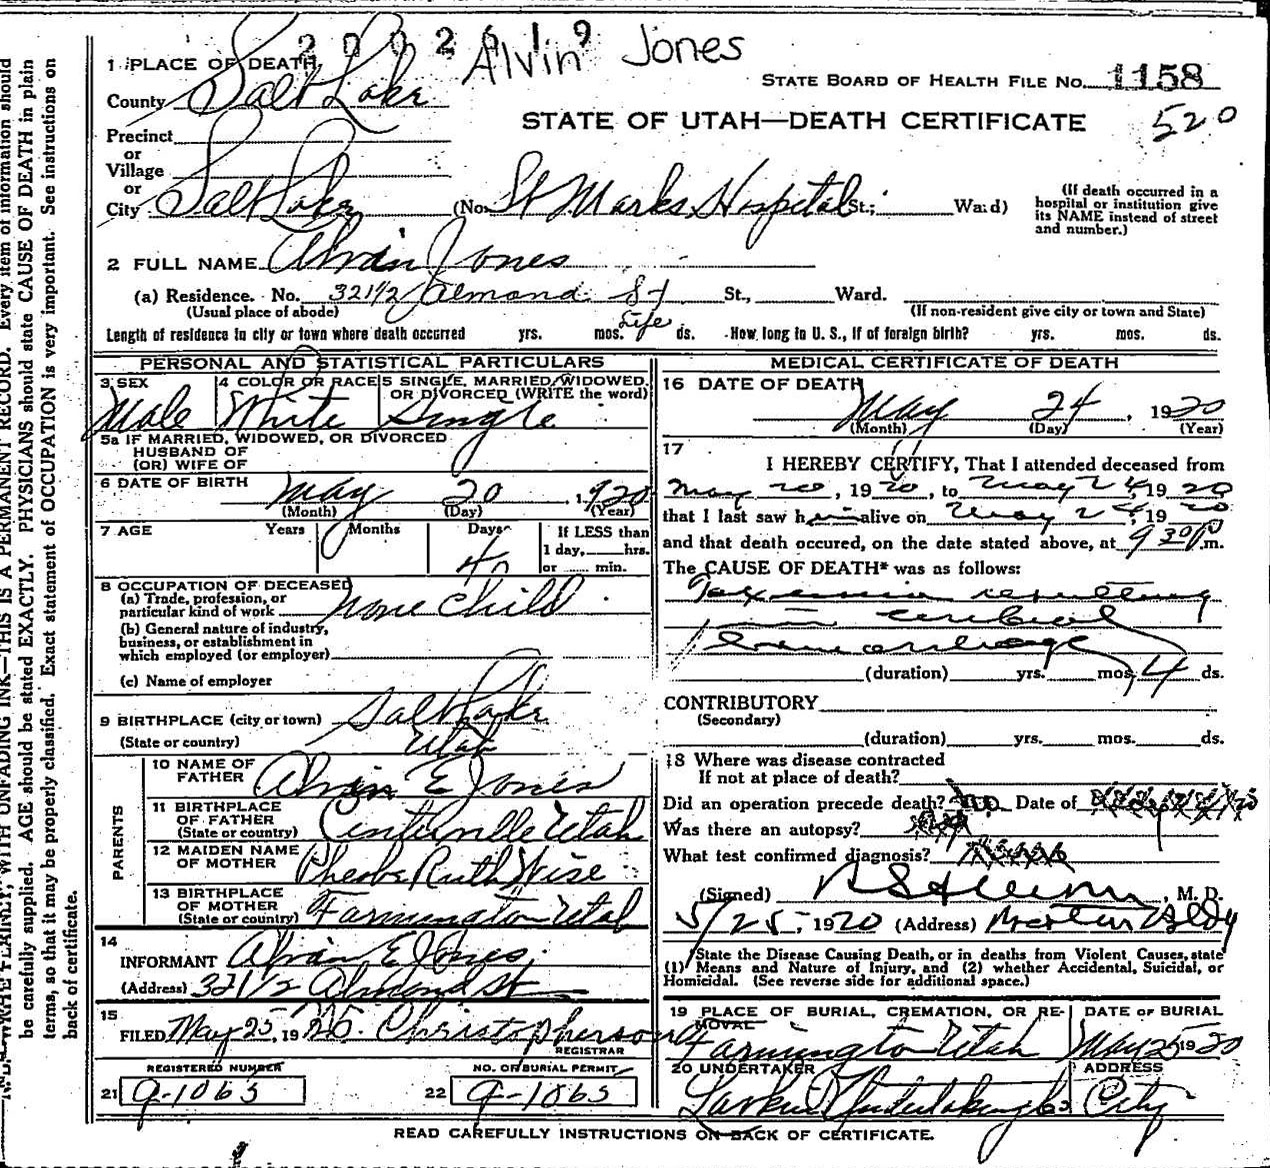 2002619
Alvin Jones
1 PLACE OF DEATH
County Salt Lake
STATE BOARD OF HEALTH FILE No. 1158
STATE OF UTAH—DEATH CERTIFICATE
520
Precinct
or
Village
or
City Salt Lake (No. St Marks Hospital St.; Ward)
(If death occurred in a
hospital or institution give
its NAME instead of street
and number.)
2 FULL NAME Alvin Jones
(a) Residence. No. 321 1/2 Almond St St., Ward.
(Usual place of abode) (If non-resident give city or town and State)
Length of residence in city or town where death occurred yrs. mos. Life ds. How long in U. S., if of foreign birth? yrs. mos. ds.
PERSONAL AND STATISTICAL PARTICULARS
3 SEX
Male
4 COLOR OR RACE
White
5 SINGLE, MARRIED, WIDOWED,
OR DIVORCED (WRITE the word)
Single
5a IF MARRIED, WIDOWED, OR DIVORCED
HUSBAND OF
(OR) WIFE OF
6 DATE OF BIRTH May 20, 1920
(Month) (Day) (Year)
7 AGE Years Months Days If LESS than
4 1 day, hrs.
or min.
8 OCCUPATION OF DECEASED
(a) Trade, profession, or
particular kind of work none Child
(b) General nature of industry,
business, or establishment in
which employed (or employer)
(c) Name of employer
9 BIRTHPLACE (city or town) Salt Lake
(State or country) Utah
PARENTS
10 NAME OF
FATHER Alvin E Jones
11 BIRTHPLACE
OF FATHER
(State or country) Centerville Utah
12 MAIDEN NAME
OF MOTHER Pheobe Ruth Wise
13 BIRTHPLACE
OF MOTHER
(State or country) Farmington Utah
14
INFORMANT Alvin E Jones
(Address) 321 1/2 Almond St
15
FILED May 25, 1920. Christopherson
REGISTRAR
REGISTERED NUMBER
21 9-1063
NO. OF BURIAL PERMIT
22 9-1063
MEDICAL CERTIFICATE OF DEATH
16 DATE OF DEATH
May 24, 1920
(Month) (Day) (Year)
17
I HEREBY CERTIFY, That I attended deceased from
May 20, 1920, to May 24, 1920
that I last saw him alive on May 24, 1920
and that death occured, on the date stated above, at 9 30 P.m.
The CAUSE OF DEATH* was as follows:
Toxemia resulting
in cerebral
hemorrhage
(duration) yrs. mos. 4 ds.
CONTRIBUTORY
(Secondary)
(duration) yrs. mos. ds.
18 Where was disease contracted
If not at place of death?
Did an operation precede death? no Date of
Was there an autopsy?
What test confirmed diagnosis?
(Signed) M. D.
5/25, 1920 (Address)
State the Disease Causing Death, or in deaths from Violent Causes, state
(1) Means and Nature of Injury, and (2) whether Accidental, Suicidal, or
Homicidal. (See reverse side for additional space.)
19 PLACE OF BURIAL, CREMATION, OR RE-
MOVAL
Farmington Utah
DATE OF BURIAL
May 25 1920
20 UNDERTAKER
Larkin Undertaking Co
ADDRESS
City
READ CAREFULLY INSTRUCTIONS ON BACK OF CERTIFICATE.
WITH UNFADING INK—THIS IS A PERMANENT RECORD. Every item of information should
be carefully supplied. AGE should be stated EXACTLY. PHYSICIANS should state CAUSE OF DEATH in plain
terms, so that it may be properly classified. Exact statement of OCCUPATION is very important. See instructions on
back of certificate.